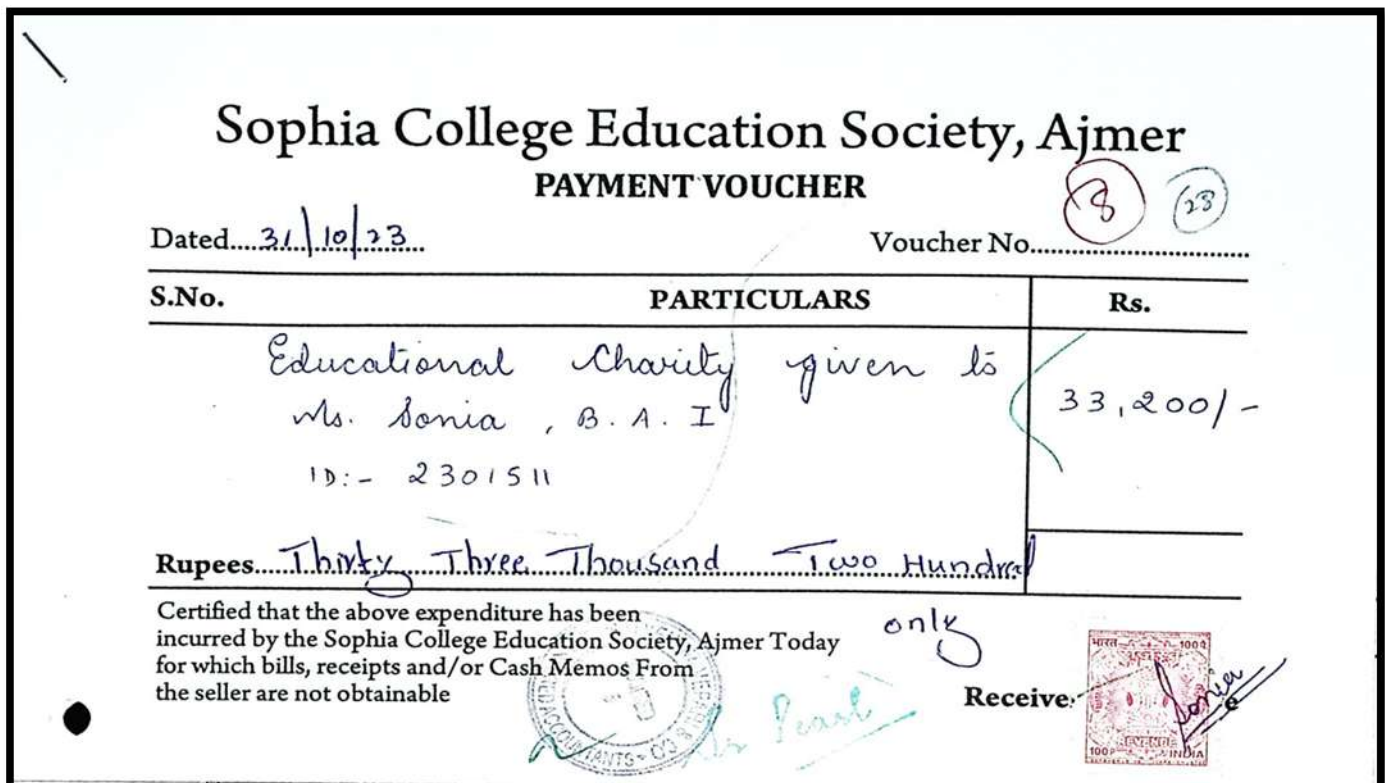 Sophia College Education Society, Ajmer
PAYMENT VOUCHER
8 23
Dated....31/10/23.... Voucher No..............................
S.No. PARTICULARS Rs.
Educational Charity given to
Ms. Sonia, B.A. I 33,200/-
ID:- 2301511
Rupees....Thirty Three Thousand Two Hundred
only
Certified that the above expenditure has been
incurred by the Sophia College Education Society, Ajmer Today
for which bills, receipts and/or Cash Memos From
the seller are not obtainable
Receive
Sonia
भारत 100
REVENUE
100 P INDIA
ACCOUNTANTS